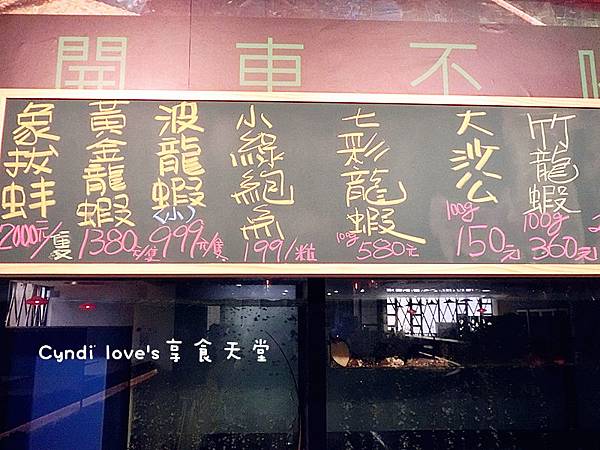 開車不
象拔蚌
2000元/隻
黃金龍蝦
1380元/隻
波龍蝦
(小)
999元/隻
小線鮑魚
199/粒
七彩龍蝦
100g 580元
大沙公
100g
150元
竹龍蝦
100g
360元
Cyndi love's享食天堂